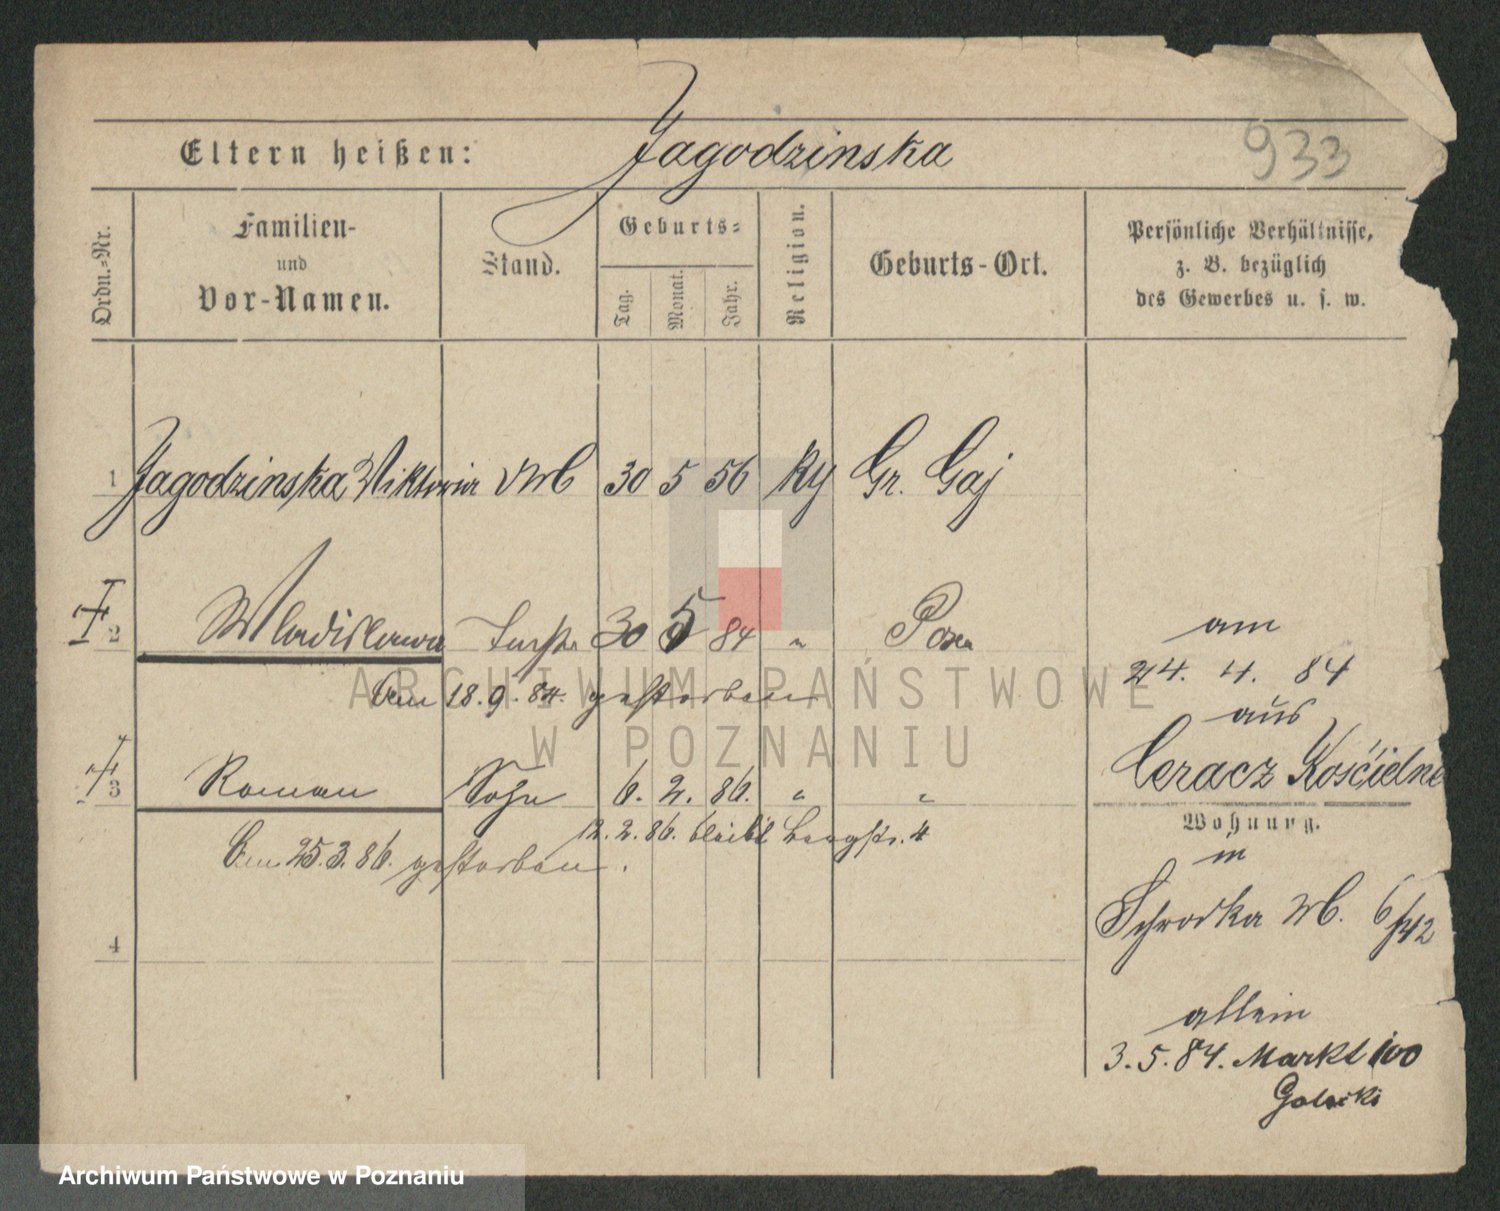 Eltern heißen: Jagodzinska 933
Ordn.-Nr.
Familien-
und
Vor-Namen.
Stand.
Geburts-
Tag.
Monat.
Jahr.
Religion.
Geburts-Ort.
Persönliche Verhältnisse,
z. B. bezüglich
des Gewerbes u. s. w.
1 Jagodzinska Wiktoria 30 5 56 Gr. Gaj
2 Wladislawa 30 5 84 " Posen
Am 18.9.84. gestorben
3 Roman Sohn 6. 2. 86. " "
12.2.86. bleibt Bergstr. 4
Am 25.3.86. gestorben.
4
am
24. 4. 84
aus
Ceracz Kościelne
Wohnung.
in
Schrodka M. 6/42
allein
3.5.84. Markt 100
ARCHIWUM PAŃSTWOWE
W POZNANIU
Archiwum Państwowe w Poznaniu